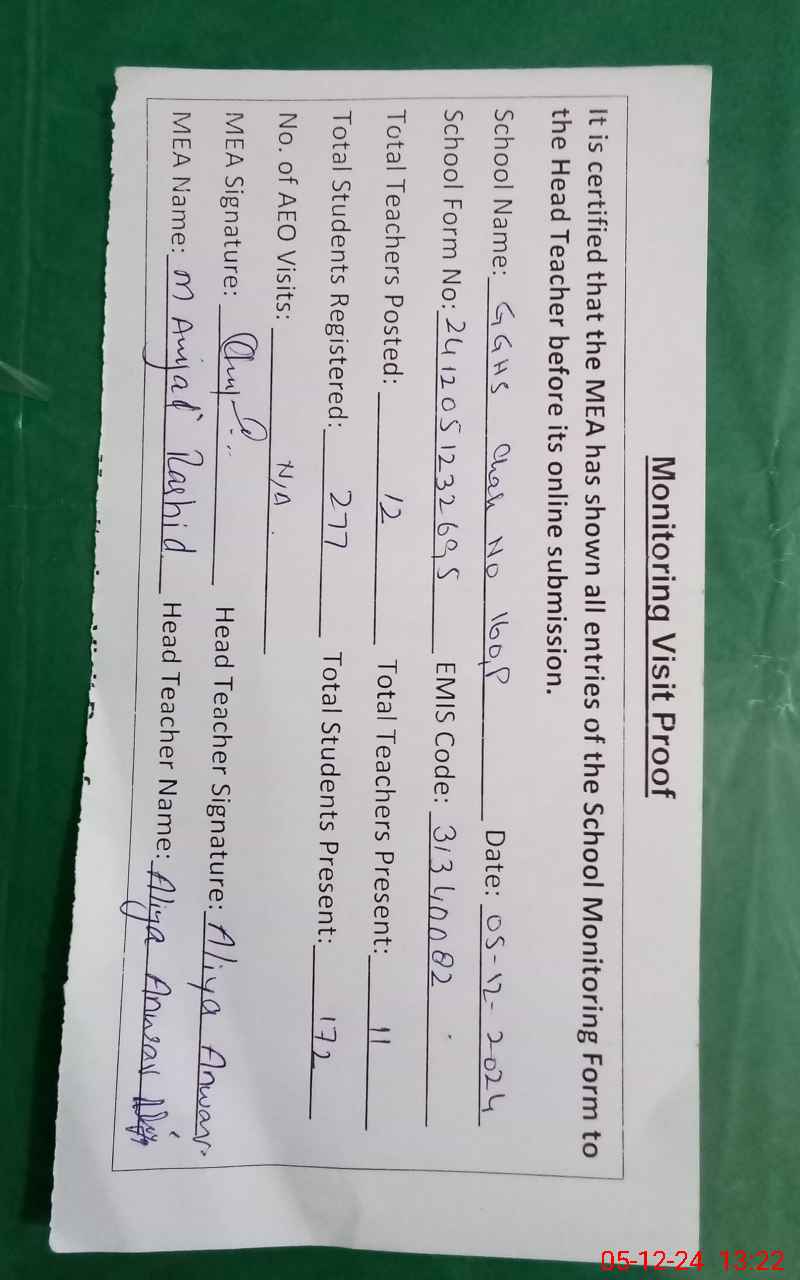 Monitoring Visit Proof
It is certified that the MEA has shown all entries of the School Monitoring Form to
the Head Teacher before its online submission.
School Name: GGHS Chak No 160,P Date: 05-12-2024
School Form No: 241205123269,5 EMIS Code: 31340082
Total Teachers Posted: 12 Total Teachers Present: 11
Total Students Registered: 277 Total Students Present: 172
No. of AEO Visits: N/A
MEA Signature: Head Teacher Signature: Aliya Anwar
MEA Name: M Amjad Rashid Head Teacher Name: Aliya Anwar
05-12-24 13:22